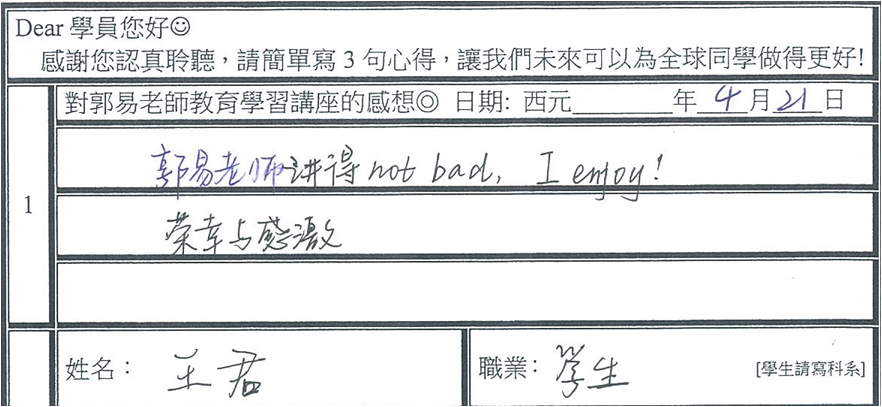 Dear 學員您好☺
感謝您認真聆聽，請簡單寫 3 句心得，讓我們未來可以為全球同學做得更好!
對郭易老師教育學習講座的感想◎ 日期: 西元________年 4 月 21 日
1
郭易老师讲得 not bad, I enjoy!
荣幸与感激
姓名： 王君
職業： 学生 [學生請寫科系]